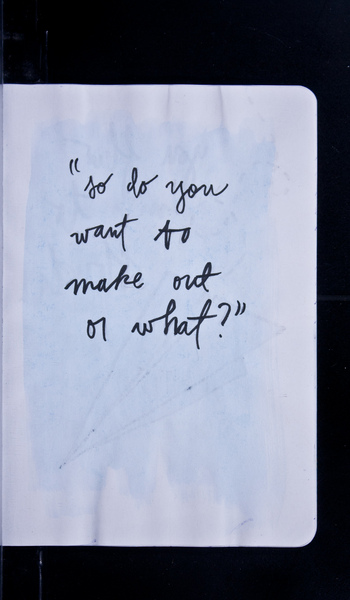 "so do you
want to
make out
or what?"